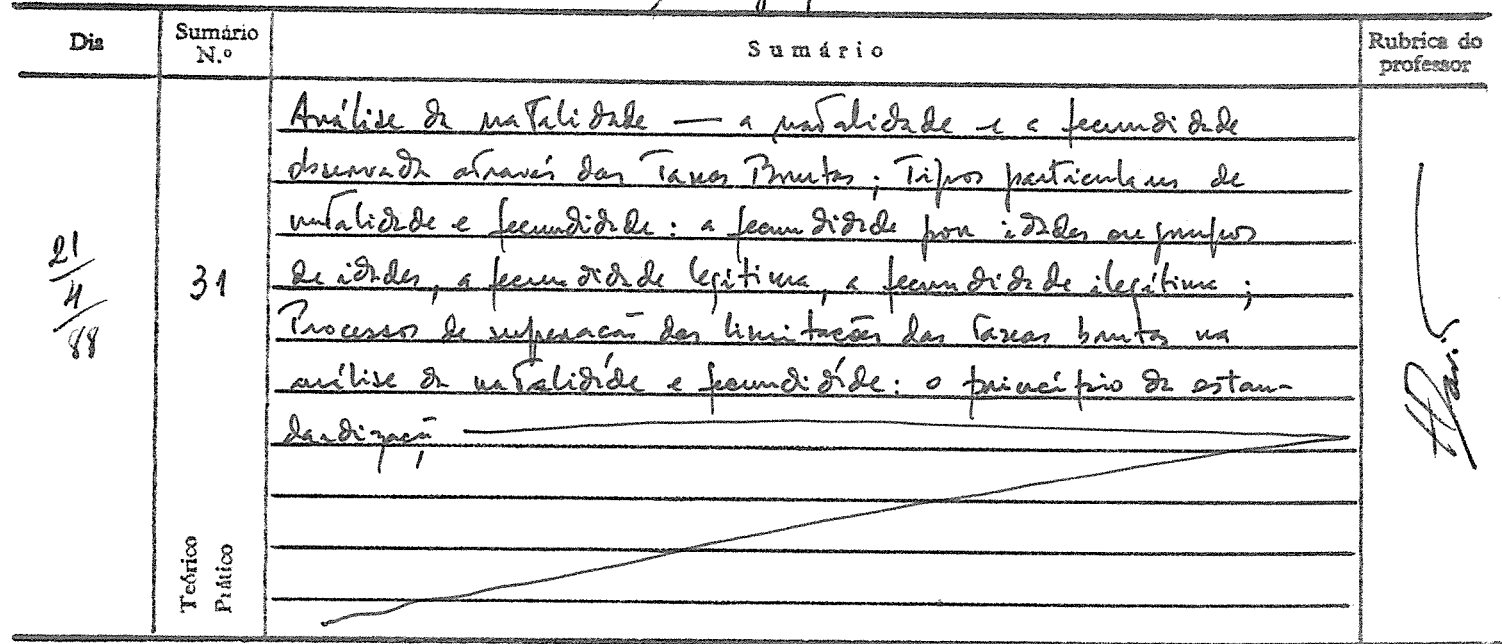 Dia
Sumário N.º
Sumário
Rubrica do professor
21/4/88
31
Análise da natalidade — a natalidade e a fecundidade
observada através das Taxas Brutas; Tipos particulares de
natalidade e fecundidade: a fecundidade por idades ou grupos
de idades, a fecundidade legítima, a fecundidade ilegítima;
Processos de superação das limitações das taxas brutas na
análise da natalidade e fecundidade: o princípio da estan-
dardização
Teórico
Prático